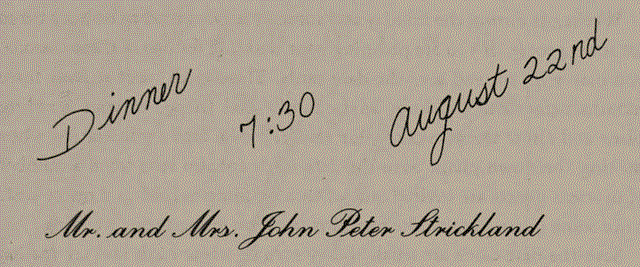 Dinner 7:30 August 22nd
Mr. and Mrs. John Peter Strickland